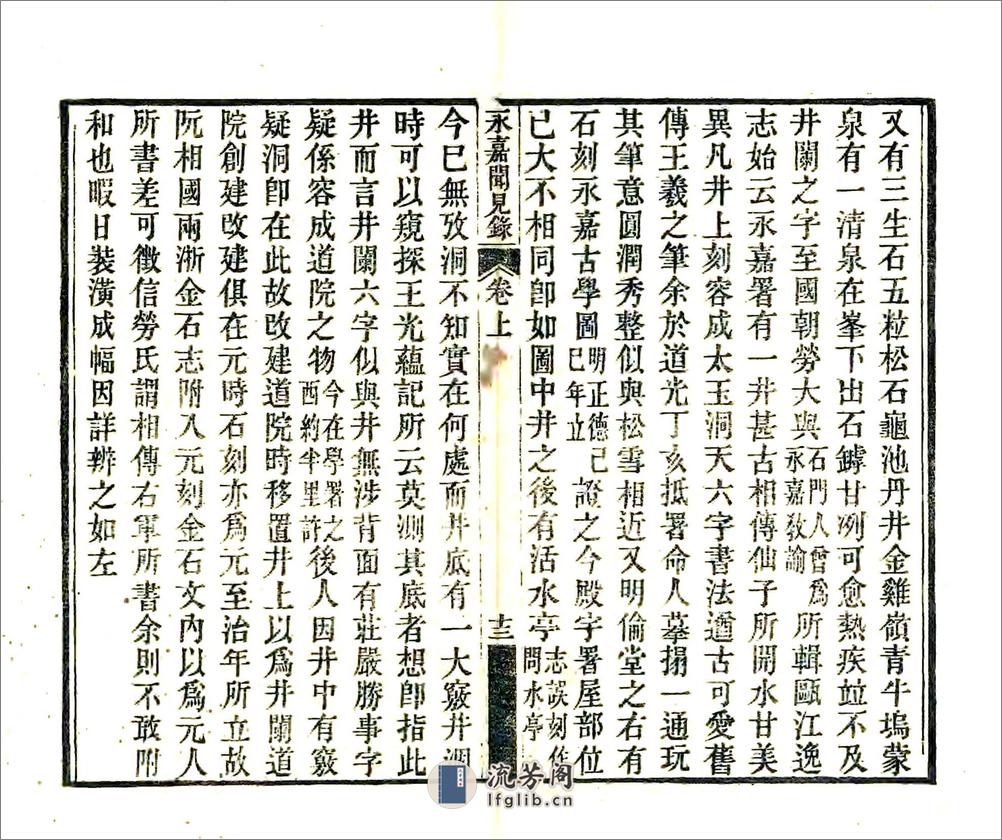 又有三生石五粒松石龜池丹井金雞嶺青牛塢蒙
泉有一清泉在峯下出石罅甘冽可愈熱疾竝不及
井闌之字至國朝勞大與石門人曾爲永嘉敎諭所輯甌江逸
志始云永嘉署有一井甚古相傳仙子所開水甘美
異凡井上刻容成太玉洞天六字書法遒古可愛舊
傳王羲之筆余於道光丁亥抵署命人摹搨一通玩
其筆意圓潤秀整似與松雪相近又明倫堂之右有
石刻永嘉古學圖明正德己巳年立證之今殿宇署屋部位
已大不相同卽如圖中井之後有活水亭志誤刻作問水亭
永嘉聞見錄 卷上 十二
今已無攷洞不知實在何處而井底有一大竅井涸
時可以窺探王光蘊記所云莫測其底者想卽指此
井而言井闌六字似與井無涉背面有莊嚴勝事字
疑係容成道院之物今在學署之西約半里許後人因井中有竅
疑洞卽在此故改建道院時移置井上以爲井闌道
院創建改建俱在元時石刻亦爲元至治年所立故
阮相國兩浙金石志附入元刻金石文內以爲元人
所書差可徵信勞氏謂相傳右軍所書余則不敢附
和也暇日裝潢成幅因詳辨之如左
流芳阁
lfglib.cn